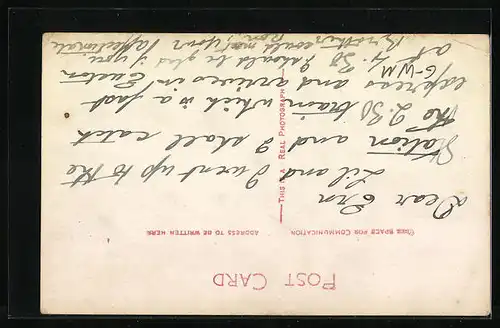 POST CARD
THIS SPACE FOR COMMUNICATION
ADDRESS TO BE WRITTEN HERE
THIS IS A REAL PHOTOGRAPH
Dear Ern
Lil and
I went up to the
Station and I shall catch
the 2.30 train which is a fast
express and arrives in Euston
at 4.30 I should be glad if you
or could meet your affectionate
Brother Ron